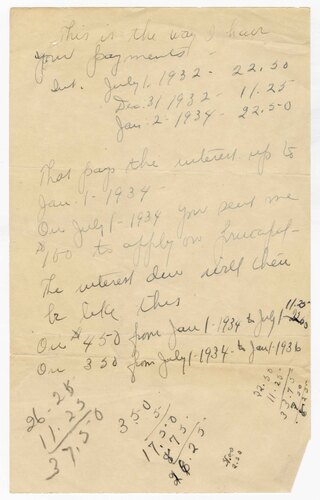 This is the way I have
your payments -
Int. July 1. 1932 - 22.50
Dec. 31 1932 - 11.25
Jan. 2 - 1934 - 22.50
That pays the interest up to
Jan. 1 - 1934 -
On July 1 - 1934 you sent me
$100 to apply on Principal -
The interest due will then
be like this
11.25
On $450 from Jan 1 - 1934 to July 1 -
On 350 from July 1 - 1934 - to Jan 1 1936
26.25
11.25
37.50
3.50
5
17.50
8.75
26.25
22.50
11.25
33.75